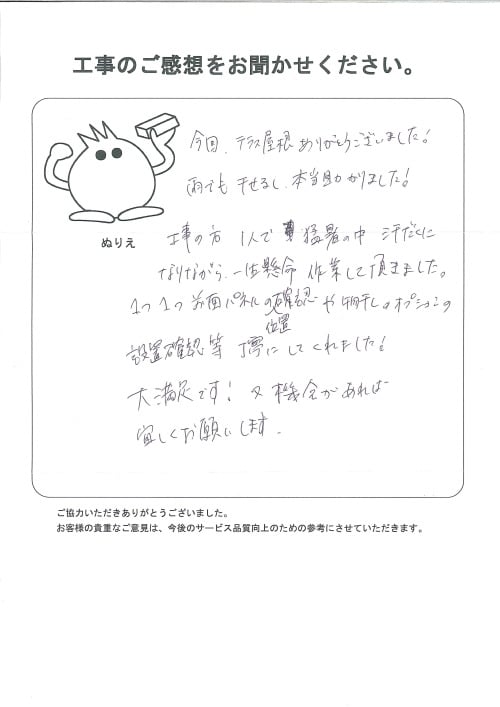 工事のご感想をお聞かせください。
今回、テラス屋根ありがとうございました!
雨でも干せるし、本当助かりました!
ぬりえ
工事の方 1人で 猛暑の中 汗だくに
なりながら、一生懸命 作業して頂きました。
1つ1つ 前面パネルの確認や物干しオプションの
位置
設置確認等 丁寧にしてくれました!
大満足です! 又機会があれば
宜しくお願いします.
ご協力いただきありがとうございました。
お客様の貴重なご意見は、今後のサービス品質向上のための参考にさせていただきます。